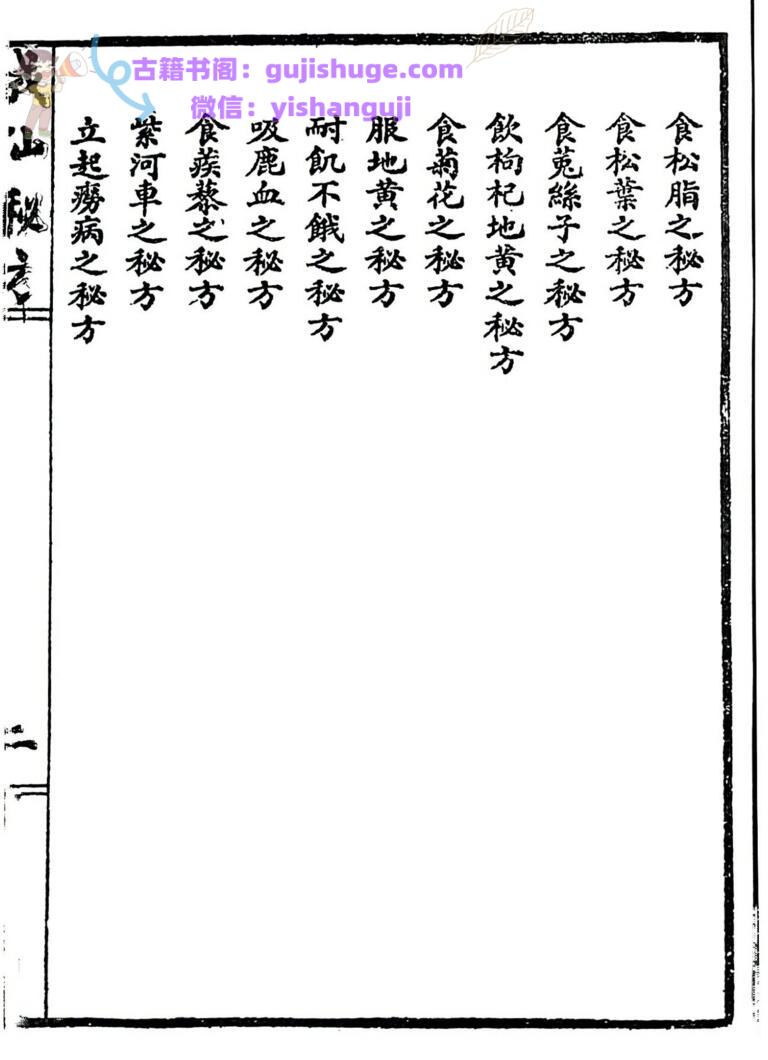 食松脂之秘方
食松葉之秘方
食菟絲子之秘方
飲枸杞地黄之秘方
食菊花之秘方
服地黄之秘方
耐飢不餓之秘方
吸鹿血之秘方
食蒺藜之秘方
紫河車之秘方
立起癆病之秘方
山秘方
二
古籍书阁：gujishuge.com
微信：yishanguji